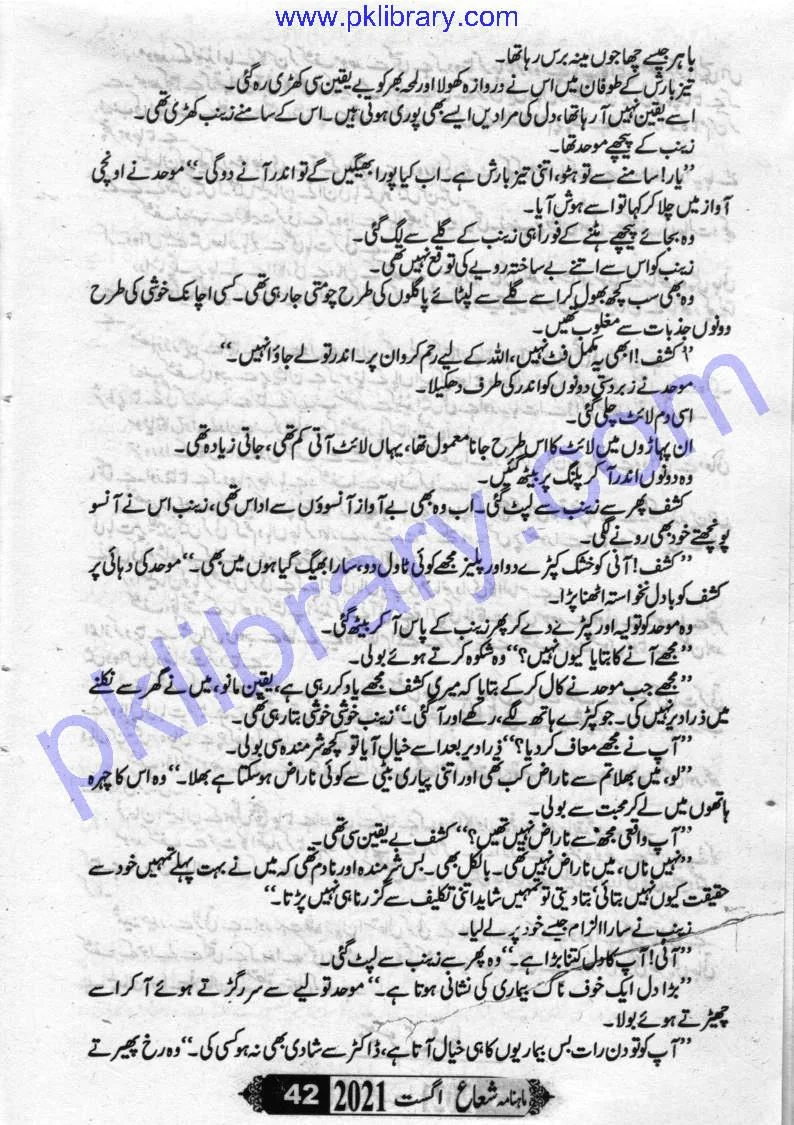 www.pklibrary.com
باہر جیسے چھاجوں مینہ برس رہا تھا۔
تیز بارش کے طوفان میں اس نے دروازہ کھولا اور لمحہ بھر کو بے یقین سی کھڑی رہ گئی۔
اسے یقین نہیں آ رہا تھا، دل کی مرادیں ایسے بھی پوری ہوتی ہیں۔ اس کے سامنے زینب کھڑی تھی۔
زینب کے پیچھے موحد تھا۔
’’یار! سامنے سے تو ہٹو، اتنی تیز بارش ہے۔ اب کیا پورا بھیگیں گے تو اندر آنے دو گی۔‘‘ موحد نے اونچی
آواز میں چلا کر کہا تو اسے ہوش آیا۔
وہ بجائے پیچھے ہٹنے کے فوراً ہی زینب کے گلے سے لگ گئی۔
زینب کو اس سے اتنے بے ساختہ رویے کی توقع نہیں تھی۔
وہ بھی سب کچھ بھول کر اسے گلے سے لپٹائے پاگلوں کی طرح چومتی جا رہی تھی۔ کسی اچانک خوشی کی طرح
دونوں جذبات سے مغلوب تھیں۔
’’کشف! ابھی یہ مکمل فٹ نہیں، اللہ کے لیے رحم کرو ان پر۔ اندر تو لے جاؤ انہیں۔‘‘
موحد نے زبردستی دونوں کو اندر کی طرف دھکیلا۔
اسی دم لائٹ چلی گئی۔
ان پہاڑوں میں لائٹ کا اس طرح جانا معمول تھا، یہاں لائٹ آتی کم تھی، جاتی زیادہ تھی۔
وہ دونوں اندر آ کر پلنگ پر بیٹھ گئیں۔
کشف پھر سے زینب سے لپٹ گئی۔ اب وہ بھی بے آواز آنسوؤں سے اداس تھی، زینب اس نے آنسو
پونچھتے خود بھی رونے لگی۔
’’کشف! آنی کو خشک کپڑے دو اور پلیز مجھے کوئی ٹاول دو، سارا بھیگ گیا ہوں میں بھی۔‘‘ موحد کی دہائی پر
کشف کو بادل نخواستہ اٹھنا پڑا۔
وہ موحد کو تولیہ اور کپڑے دے کر پھر زینب کے پاس آ کر بیٹھ گئی۔
’’مجھے آنے کا بتایا کیوں نہیں؟‘‘ وہ شکوہ کرتے ہوئے بولی۔
’’مجھے جب موحد نے کال کر کے بتایا کہ میری کشف مجھے یاد کر رہی ہے، یقین مانو، میں نے گھر سے نکلنے
میں ذرا دیر نہیں کی۔ جو کپڑے ہاتھ لگے، رکھے اور آ گئی۔‘‘ زینب خوشی خوشی بتا رہی تھی۔
’’آپ نے مجھے معاف کر دیا؟‘‘ ذرا دیر بعد اسے خیال آیا تو کچھ شرمندہ سی بولی۔
’’لو، میں بھلا تم سے ناراض کب تھی اور اتنی پیاری بیٹی سے کوئی ناراض ہو سکتا ہے بھلا۔‘‘ وہ اس کا چہرہ
ہاتھوں میں لے کر محبت سے بولی۔
’’آپ واقعی مجھ سے ناراض نہیں تھیں؟‘‘ کشف بے یقین سی تھی۔
’’نہیں ناں، میں ناراض نہیں تھی۔ بالکل بھی۔ بس شرمندہ اور نادم تھی کہ میں نے بہت پہلے تمہیں خود سے
حقیقت کیوں نہیں بتائی‘ بتا دیتی تو تمہیں شاید اتنی تکلیف سے گزرنا ہی نہیں پڑتا۔‘‘
زینب نے سارا الزام جیسے خود پر لے لیا۔
’’آنی! آپ کا دل کتنا بڑا ہے۔‘‘ وہ پھر سے زینب سے لپٹ گئی۔
’’بڑا دل ایک خوف ناک بیماری کی نشانی ہوتا ہے۔‘‘ موحد تولیے سے سر رگڑتے ہوئے آ کر اسے
چھیڑتے ہوئے بولا۔
’’آپ کو تو دن رات بس بیماریوں کا ہی خیال آتا ہے، ڈاکٹر سے شادی بھی نہ ہو کسی کی۔‘‘ وہ رخ پھیرتے
ماہنامہ شعاع اگست 2021 42
pklibrary.com